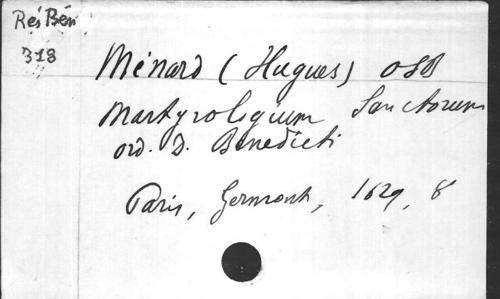 Rés Bén
318
Ménard (Hugues) OSB
Martyrologium Sanctorum
ord. D. Benedicti
Paris, Germont, 1629, 8